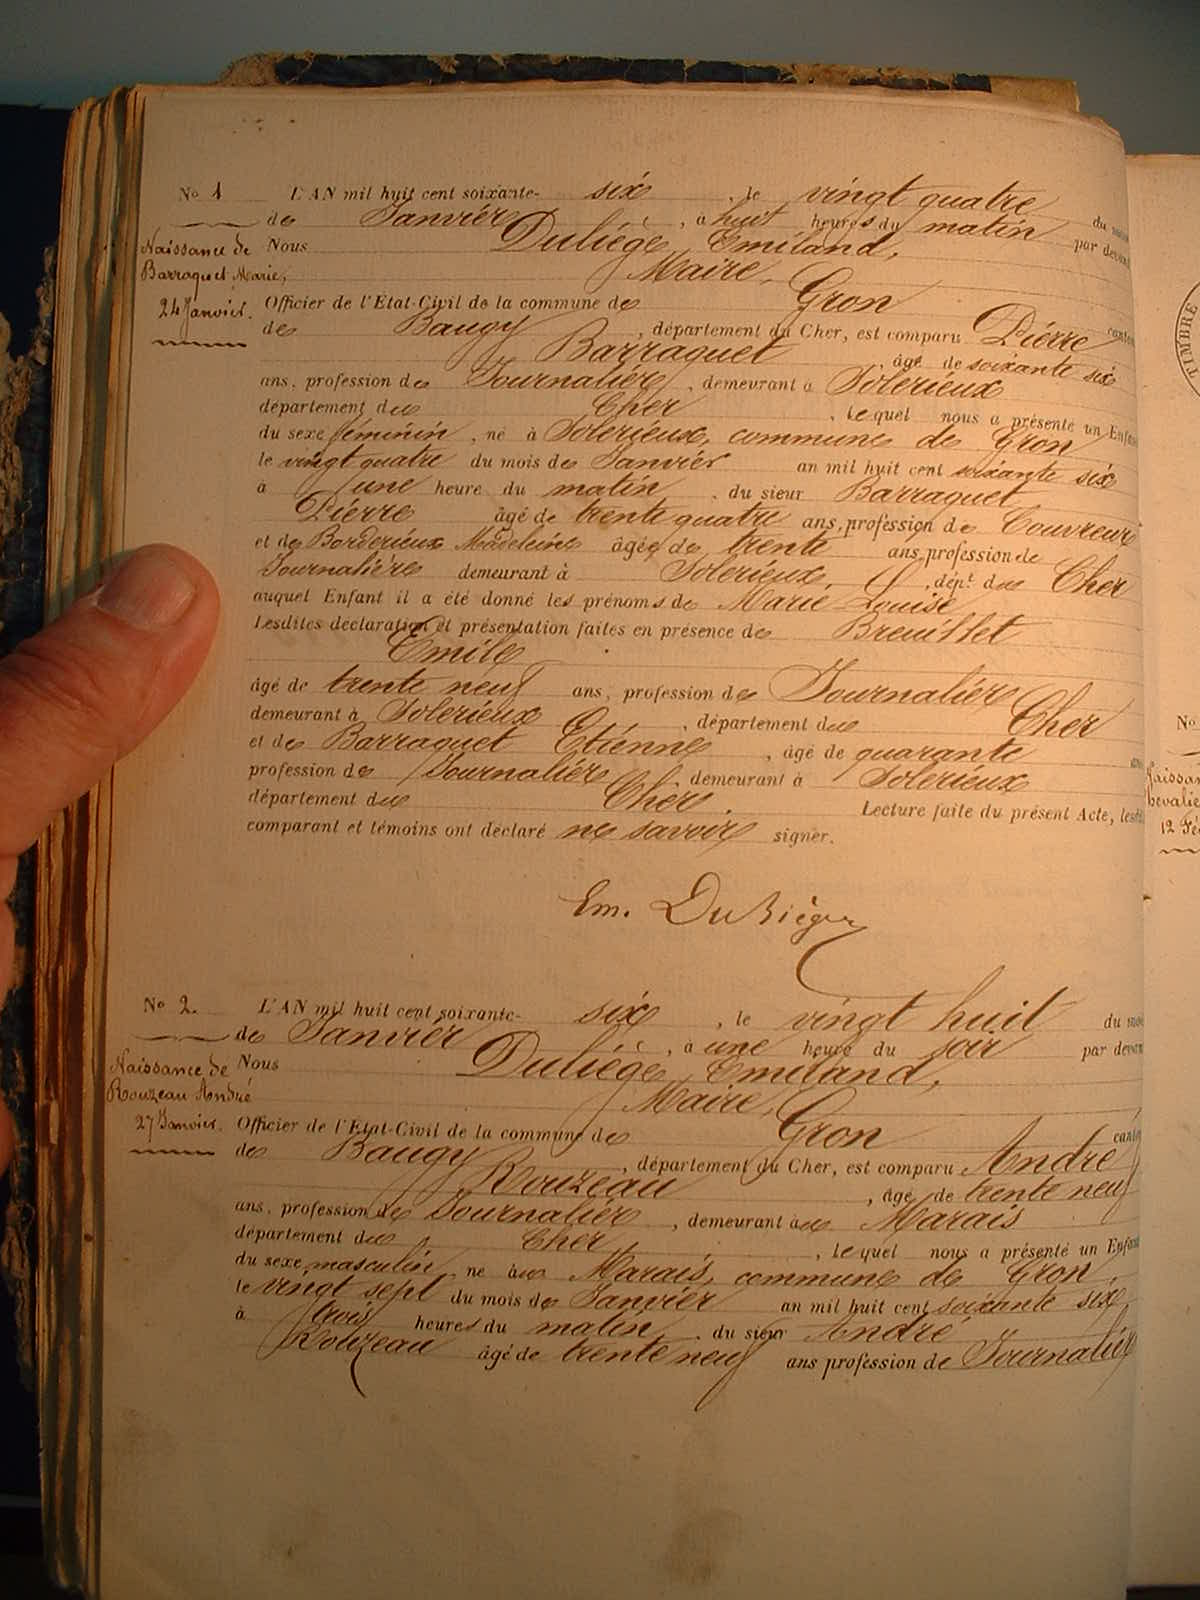 No 1
Naissance de
Barraquet Marie,
24 Janvier.
L'AN mil huit cent soixante- six , le vingt quatre du
de Janvier , à huit heures du matin par devant
Nous Duliége Emiland,
Maire,
Officier de l'Etat-Civil de la commune de Gron canton
de Baugy , département du Cher, est comparu Pierre
Barraquet , âgé de soixante six
ans, profession de Journalière , demeurant à Solerieux
département du Cher , lequel nous a présenté un Enfant
du sexe féminin , né à Solerieux, commune de Gron
le vingt quatre du mois de Janvier an mil huit cent soixante six
à une heure du matin , du sieur Barraquet
Pierre âgé de trente quatre ans, profession de Couvreur
et de Borderieux Madeleine âgée de trente ans, profession de
Journalière demeurant à Solerieux, dépt. du Cher
auquel Enfant il a été donné les prénoms de Marie Louise
Lesdites déclaration et présentation faites en présence de Breuillet
Emile
âgé de trente neuf ans, profession de Journalière
demeurant à Solerieux , département du Cher
et de Barraquet Etienne , âgé de quarante ans
profession de Journalière , demeurant à Solerieux
département du Cher. Lecture faite du présent Acte, lesdits
comparant et témoins ont déclaré ne savoir signer.
Em. Duliège
No 2.
Naissance de
Rouzeau André
27 Janvier.
L'AN mil huit cent soixante- six , le vingt huit du mois
de Janvier , à une heure du soir par devant
Nous Duliége Emiland,
Maire,
Officier de l'Etat-Civil de la commune de Gron canton
de Baugy , département du Cher, est comparu André
Rouzeau , âgé de trente neuf
ans, profession de Journalier , demeurant au Marais
département du Cher , lequel nous a présenté un Enfant
du sexe masculin , né au Marais, commune de Gron
le vingt sept du mois de Janvier an mil huit cent soixante six
à trois heures du matin , du sieur André
Rouzeau âgé de trente neuf ans profession de Journalier
TIMBRE
No
12 Fé